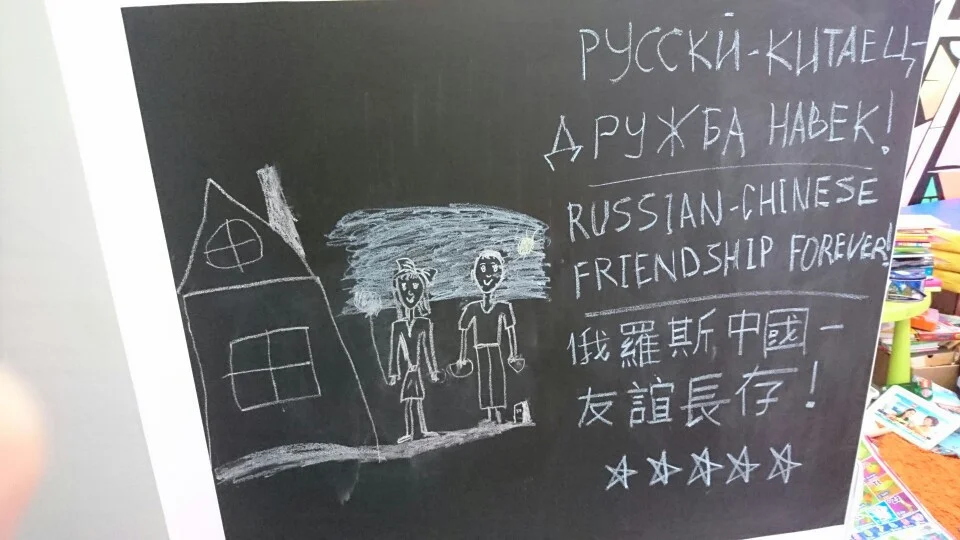 РУССКЙ-КИТАЕЦ-
ДРУЖБА НАВЕК!
RUSSIAN-CHINESE
FRIENDSHIP FOREVER!
俄羅斯中國-
友誼長存!